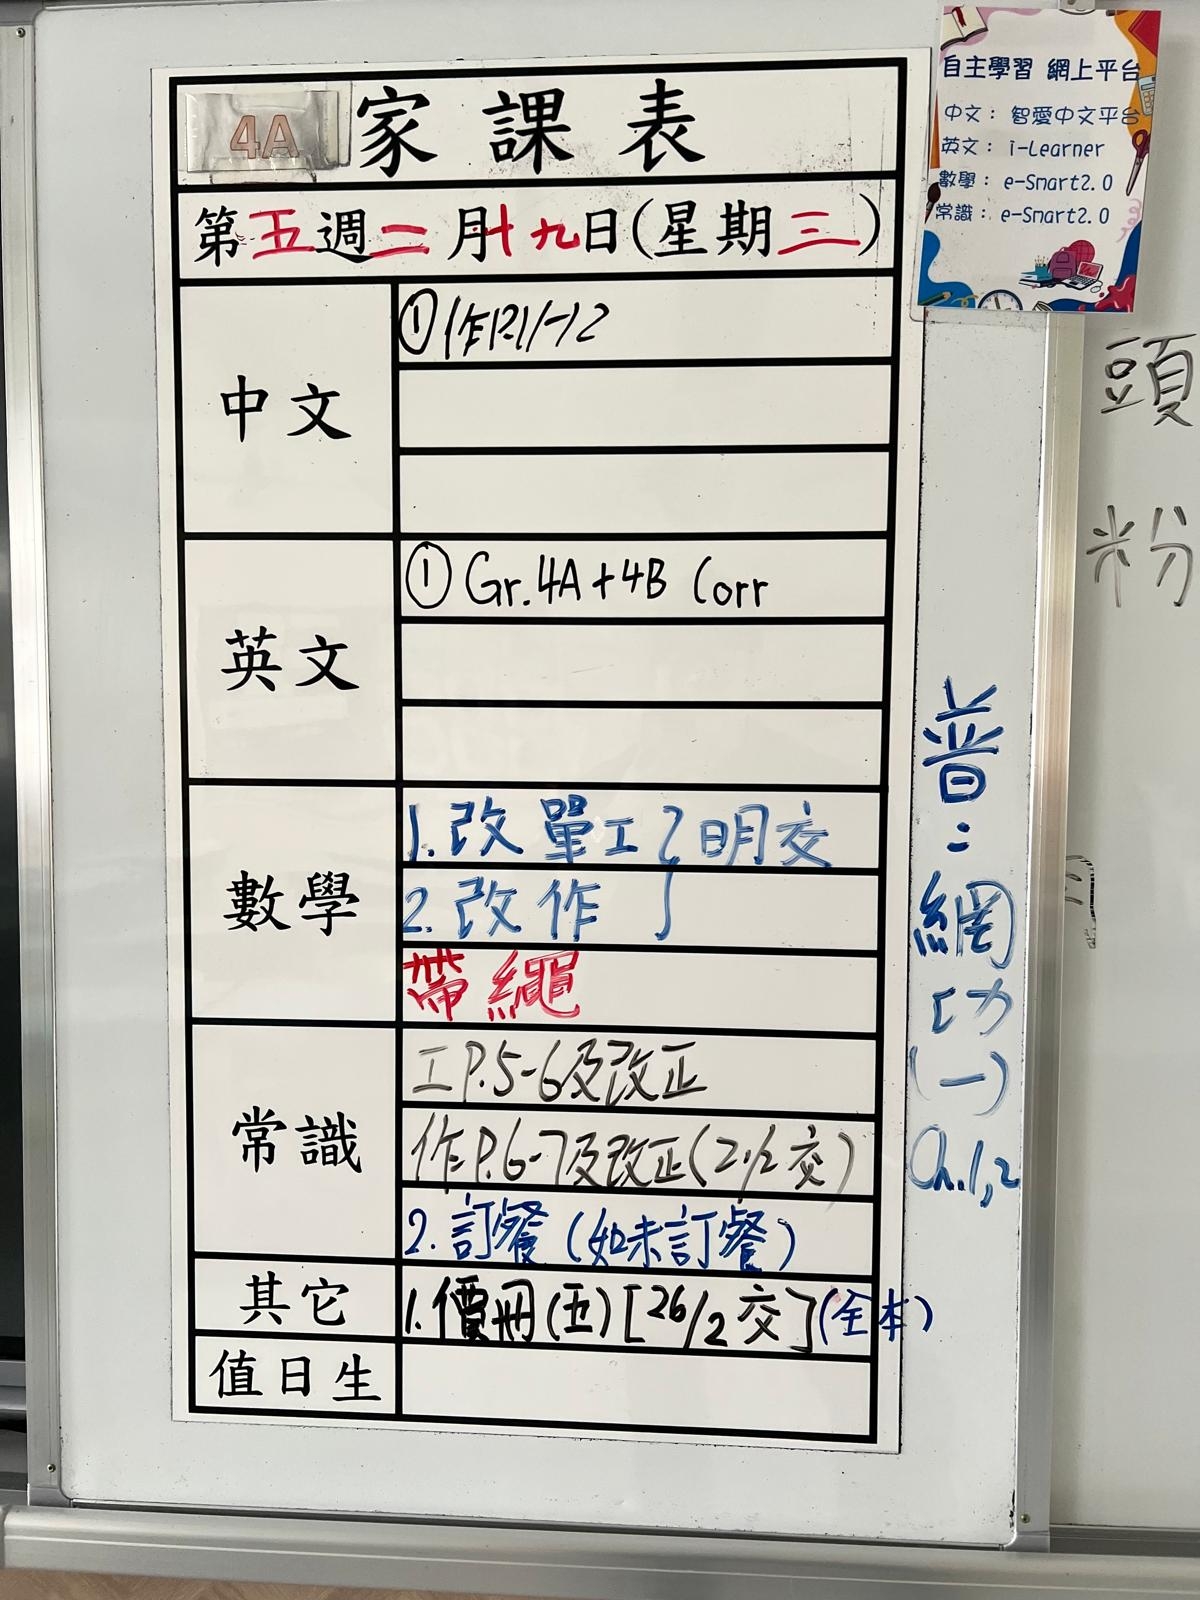 4A 家課表
第五週二月十九日(星期三)
中文
①作P.11-12
英文
① Gr. 4A + 4B Corr
數學
1. 改單工 } 明交
2. 改作
帶繩
常識
工P.5-6及改正
作P.6-7及改正(21/2交)
2. 訂餐(如未訂餐)
其它
1. 價冊(五)[26/2交](全本)
值日生
自主學習 網上平台
中文: 智愛中文平台
英文: i-Learner
數學: e-Smart2.0
常識: e-Smart2.0
普:網功(一)Ch.1,2
頭
粉